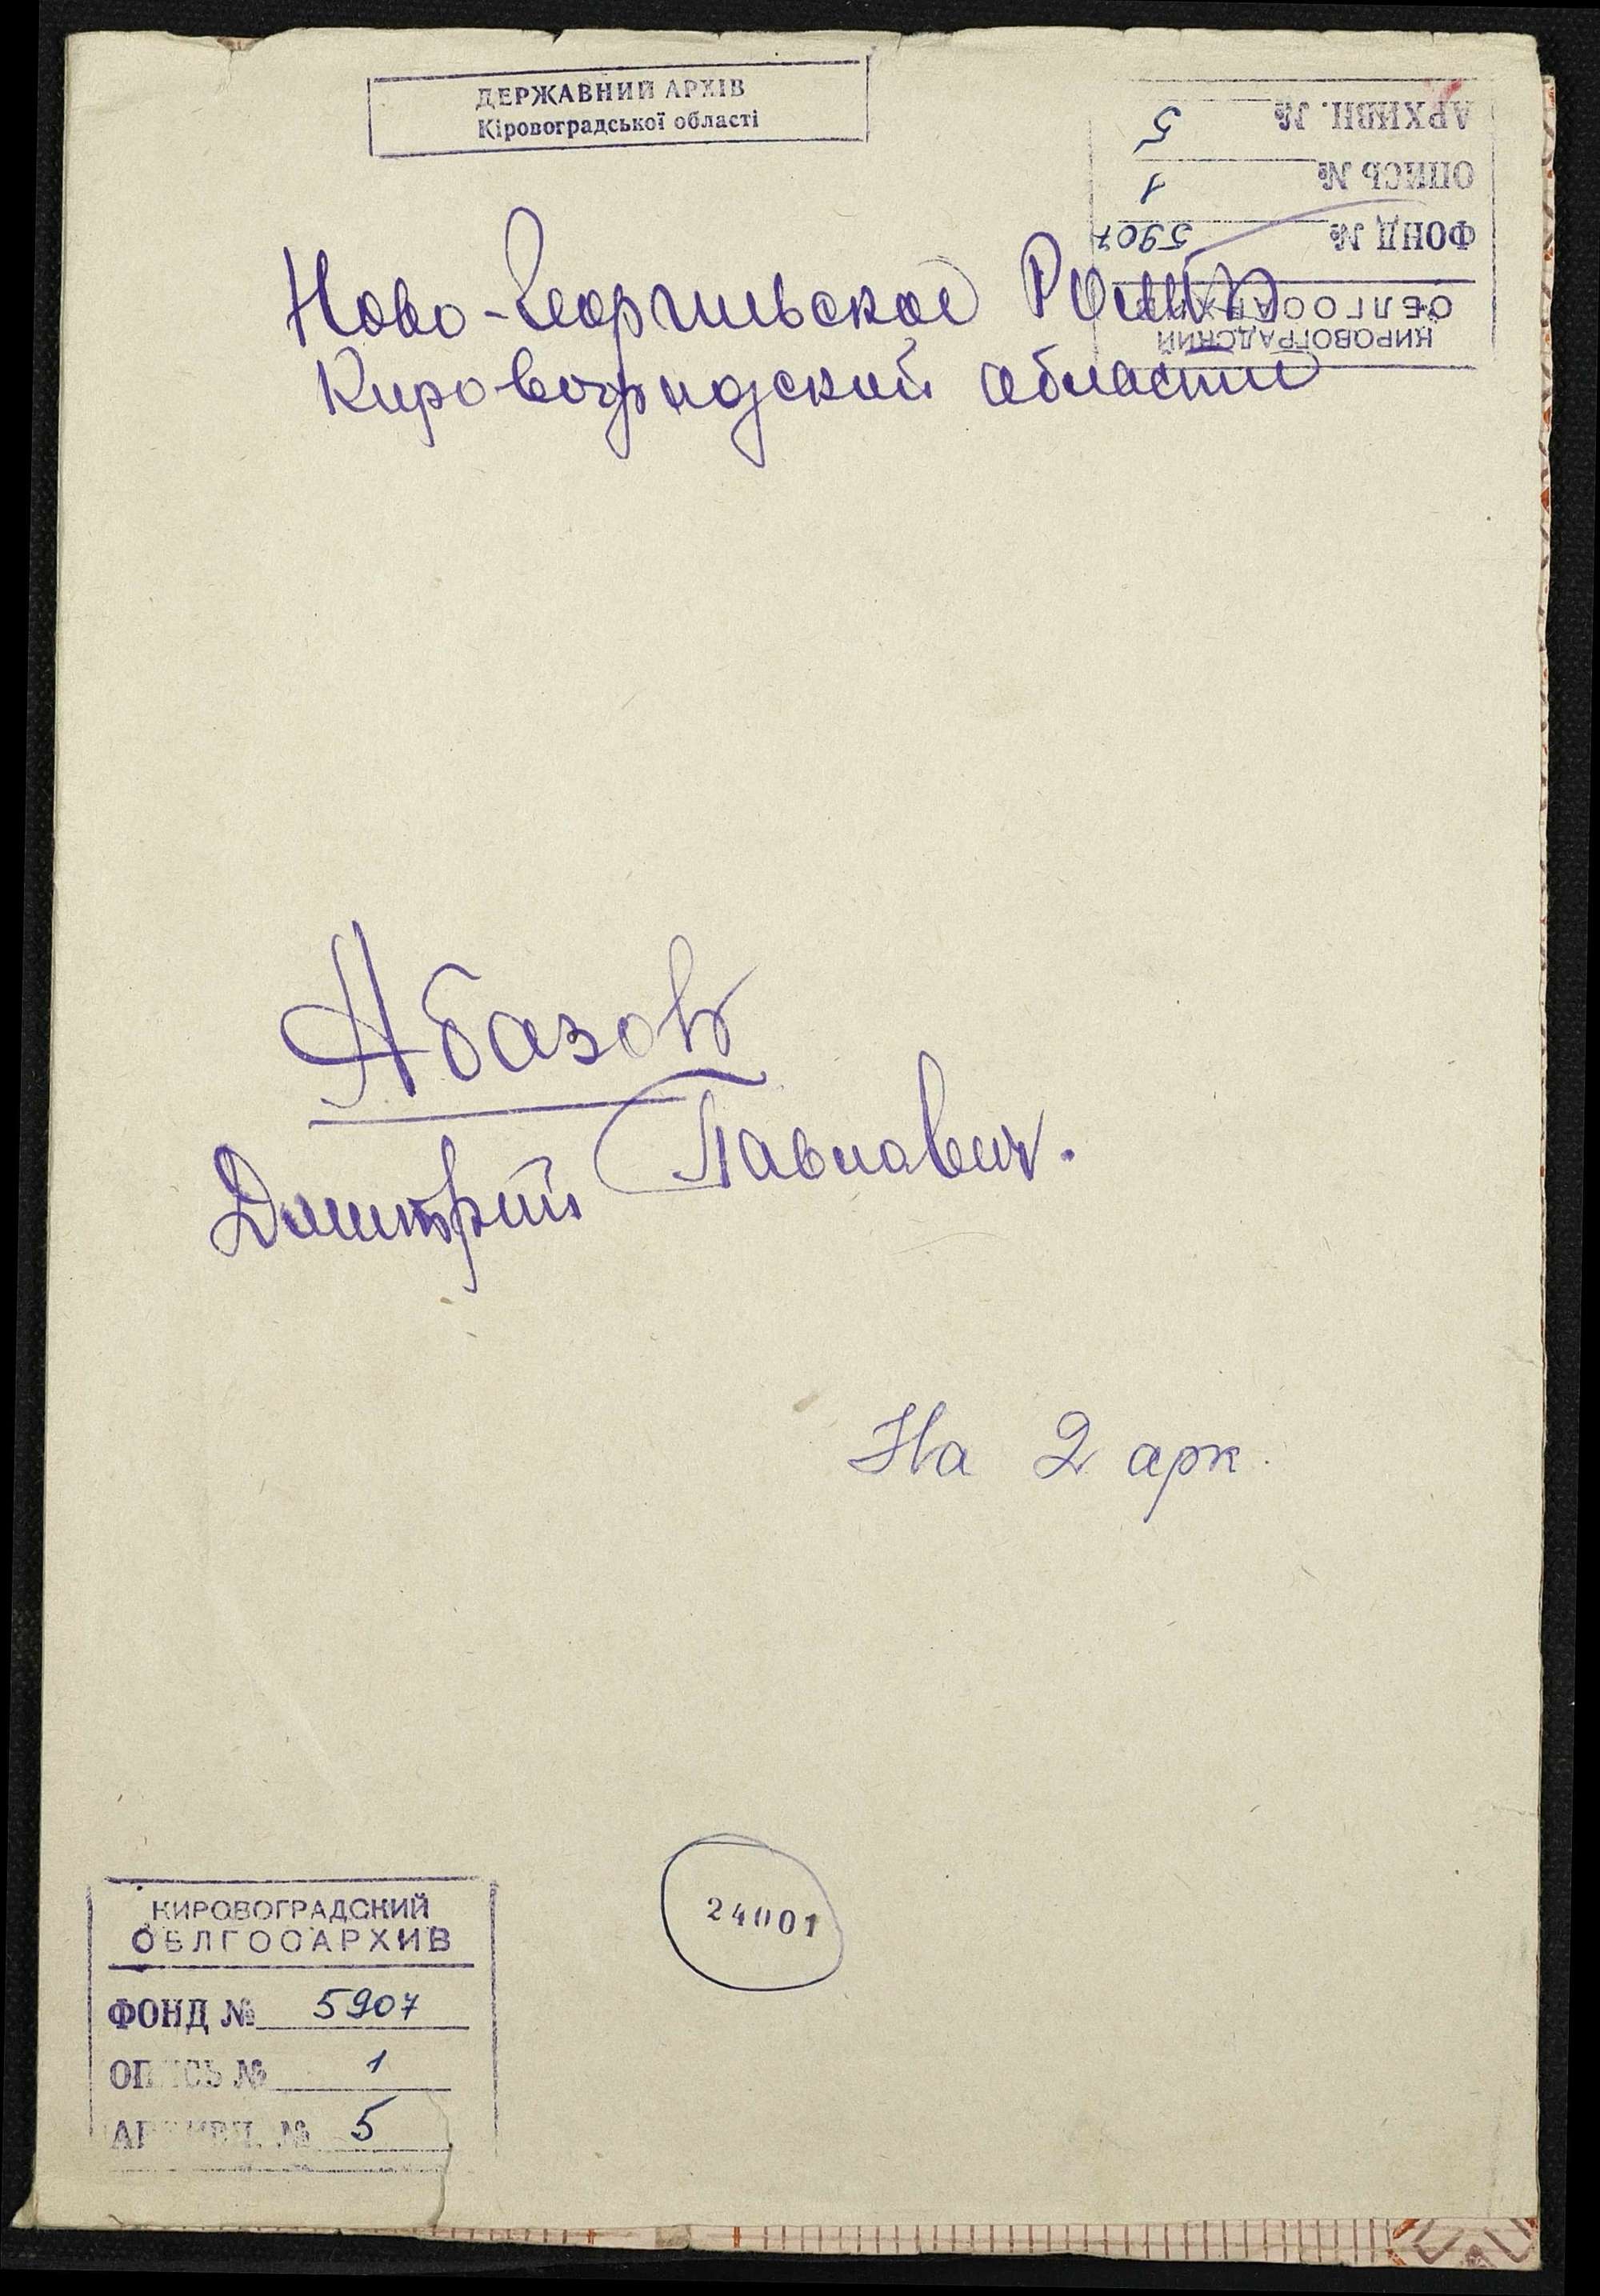 ДЕРЖАВНИЙ АРХІВ
Кіровоградської області
АРХИВН. № 5
ОПИСЬ № 1
ФОНД № 5907
КИРОВОГРАДСКИЙ
ОБЛГОСАРХИВ
Ново-Георгиевское
Кировоградской области
Абазов
Дмитрий Павлович.
На 2 арк.
24001
КИРОВОГРАДСКИЙ
ОБЛГОСАРХИВ
ФОНД № 5907
ОПИСЬ № 1
АРХИВН. № 5